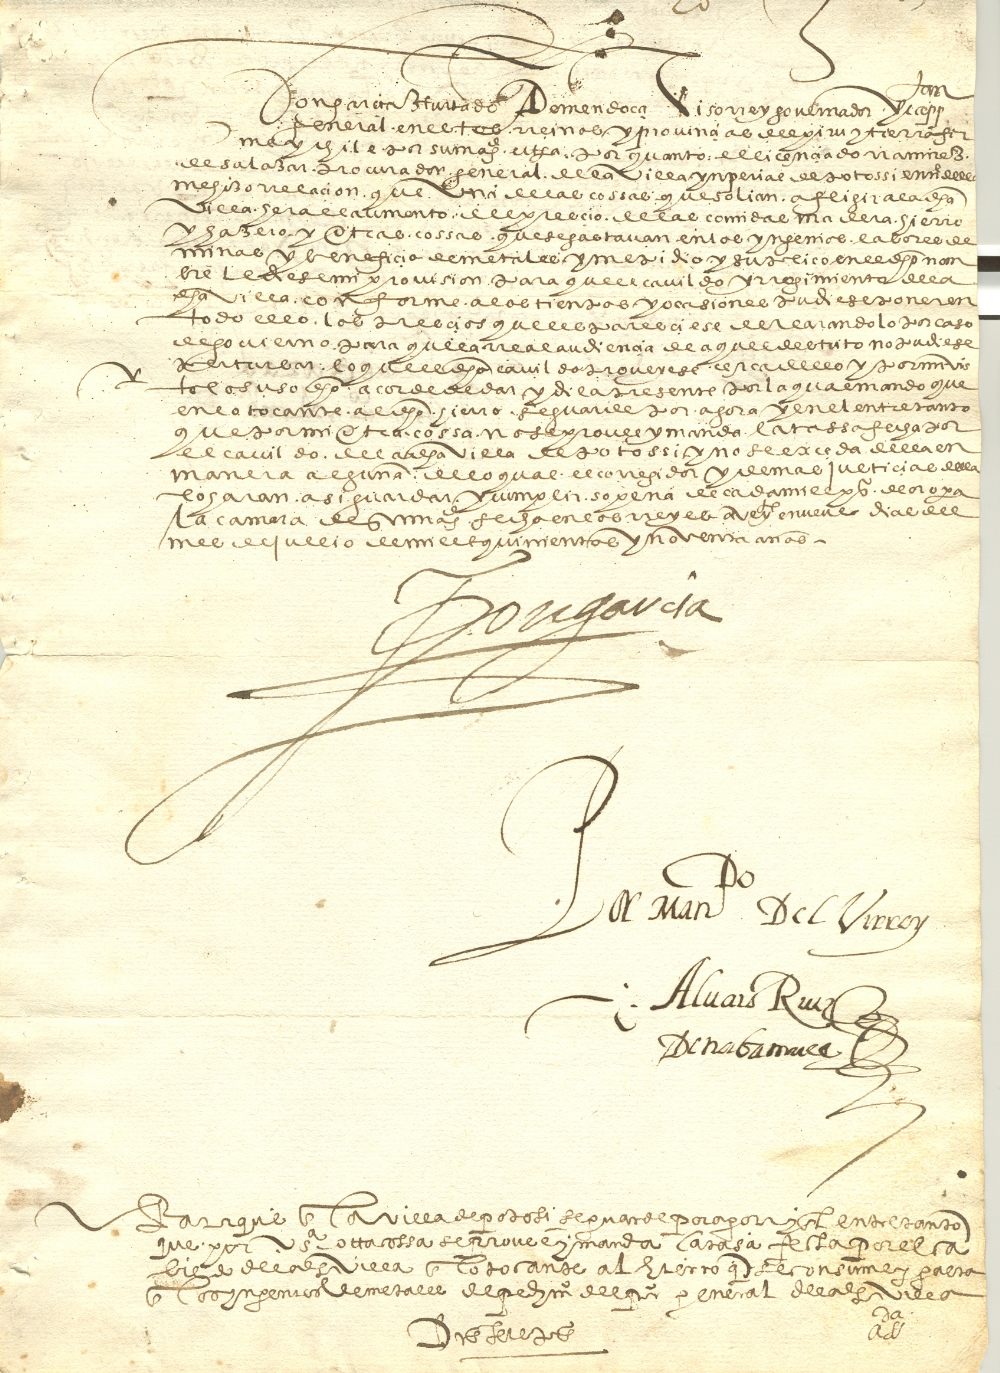 Don garcia Hurtado De mendoça Visorrey governador y capp
general en estos rreinos y provincias del piru tierra fir
me y chile por su mag.d ettª. por quanto el licenciado rramirez
de salazar procurador general de la Villa ynperial de potossi en nre della
me hizo rrelacion que Una de las cossas que solian afligir a la dha
Villa hera el aumento del precio de las comidas madera hierro
y hazero y Otras cossas que se gastavan en los yngenios labores de
minas y beneficio de metales y me pidio y suplico en el dho nom
bre le diese mi provision para que el cavildo y rregimiento de la
dha Villa conforme a los tienpos y ocasiones pudiese poner en
todo ello los precios que les paresciese declarandolo por caso
de govierno para que la rreal audiencia de aquel destrito no pudiese
perturbar lo que el dho cavildo proveyese cerca dello y por mi vis
to lo suso dho acorde de dar y di la presente por la qual mando que
en lo tocante al dho hierro se guarde por agora y en el entretanto
que por mi Otra cossa no se provee y manda la tassa fecha por
el cavildo de la dha Villa de potossi y no se exceda della en
manera alguna de lo qual el corregidor y demas justicias della
lo haran asi guardar y cumplir so pena de cada mill ps. de oro pa
la camara de Su mag.d fecha en los rreyes a veynte nueve dias del
mes de jullio de mill e quinientos y noventa años
Don garcia
Por Man.do Del Virrey
Alvaro Ruiz
De nabamuel
Para que en la villa de potosi se guarde por agora y en el entretanto
que por Vsª otra cossa se provee y manda la tasa fecha por el ca
bildo de la dha Villa en lo tocante al hierro que se consume y gasta
en los yngenios de metales de pedimº del pr general de la dha Villa